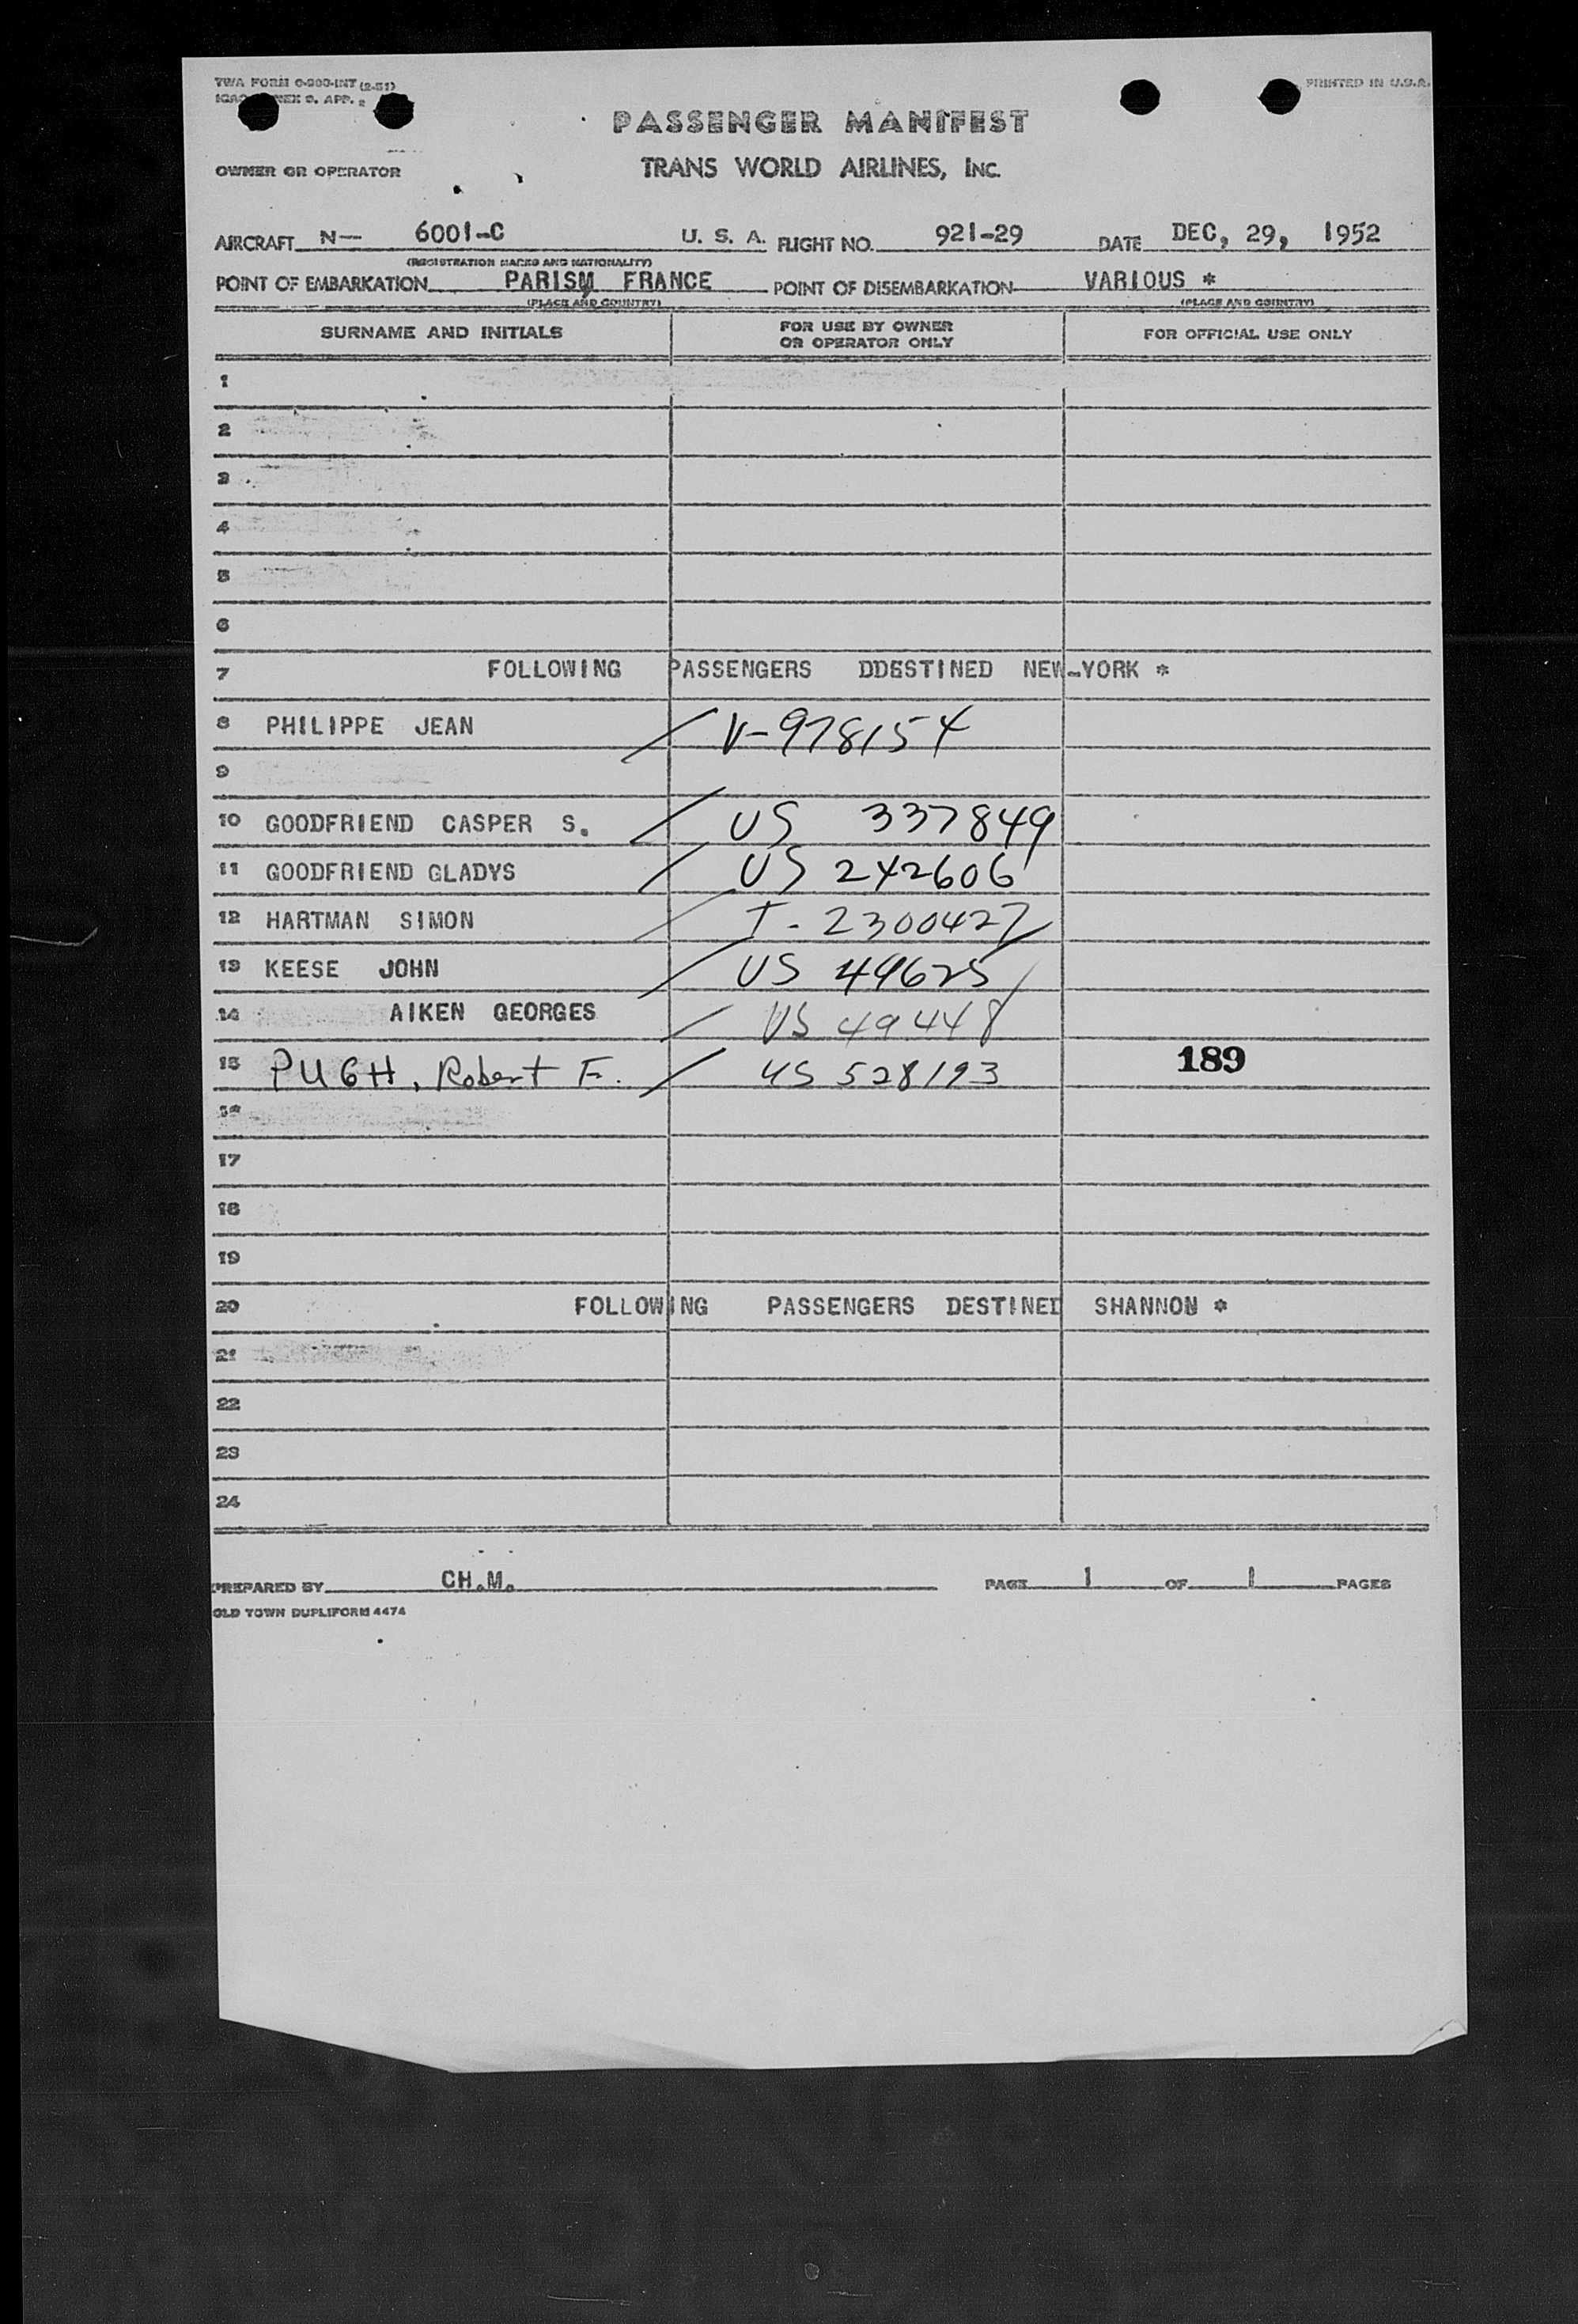 TWA FORM O-300-INT (2-51)
PRINTED IN U.S.A.
PASSENGER MANIFEST
OWNER OR OPERATOR
TRANS WORLD AIRLINES, INC.
AIRCRAFT N— 6001-C U. S. A. FLIGHT NO. 921-29 DATE DEC, 29, 1952
(REGISTRATION MARKS AND NATIONALITY)
POINT OF EMBARKATION PARISM FRANCE POINT OF DISEMBARKATION VARIOUS *
(PLACE AND COUNTRY) (PLACE AND COUNTRY)
SURNAME AND INITIALS FOR USE BY OWNER OR OPERATOR ONLY FOR OFFICIAL USE ONLY
1
2
3
4
5
6
7 FOLLOWING PASSENGERS DDESTINED NEW-YORK *
8 PHILIPPE JEAN / V-978154
9
10 GOODFRIEND CASPER S. / US 337849
11 GOODFRIEND GLADYS / US 242606
12 HARTMAN SIMON / I-2300427
13 KEESE JOHN / US 49625
14 AIKEN GEORGES / US 49448
15 PUGH, Robert F. / US 528193 189
16
17
18
19
20 FOLLOWING PASSENGERS DESTINED SHANNON *
21
22
23
24
PREPARED BY CH.M. PAGE 1 OF 1 PAGES
OLD TOWN DUPLIFORM 4474